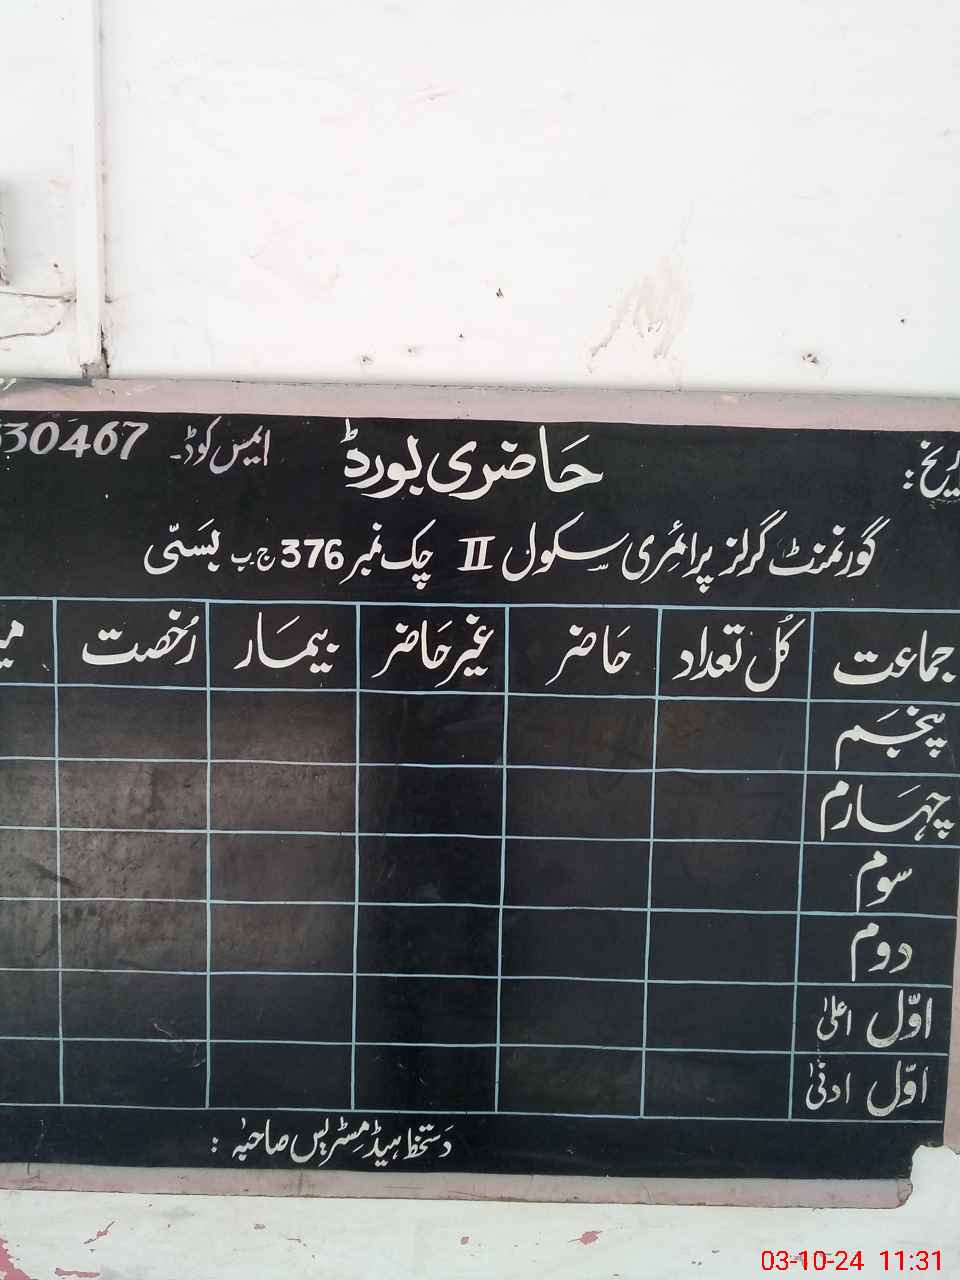 حاضری بورڈ
ایمس کوڈ۔ 30467
گورنمنٹ گرلز پرائمری سکول II چک نمبر 376 ج ب بستی
جماعت کل تعداد حاضر غیر حاضر بیمار رُخصت
پنجم
چہارم
سوم
دوم
اوّل اعلیٰ
اوّل ادنیٰ
دستخط ہیڈ مسٹریس صاحبہ :
03-10-24 11:31